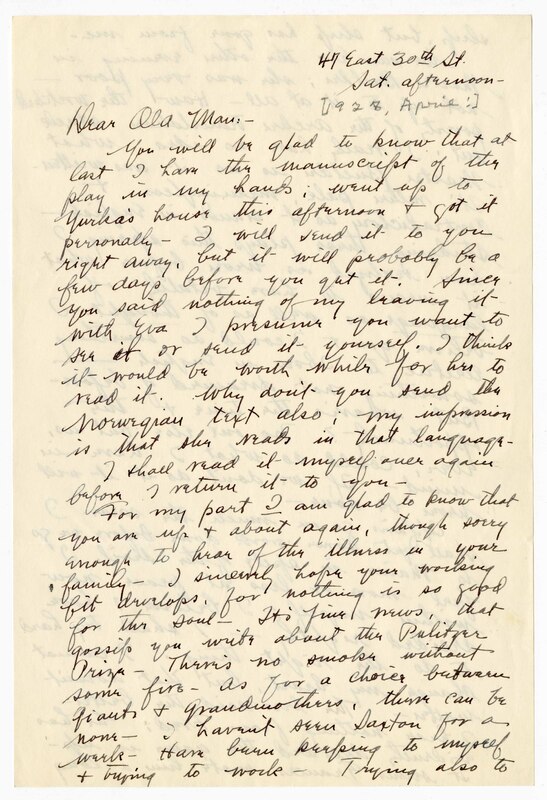 47 East 30th St.
Sat. afternoon-
[1928, April?]
Dear Old Man:-
You will be glad to know that at
last I have the manuscript of the
play in my hands; went up to
Yurka's house this afternoon & got it
personally- I will send it to you
right away, but it will probably be a
few days before you get it. Since
you said nothing of my leaving it
with Eva I presume you want to
see it or send it yourself. I think
it would be worth while for her to
read it. Why don't you send the
Norwegian text also; my impression
is that she reads in that language-
I shall read it myself over again
before I return it to you-
For my part I am glad to know that
you are up & about again, though sorry
enough to hear of the illness in your
family- I sincerely hope your working
fit develops, for nothing is so good
for the soul- It's fine news, that
gossip you write about the Pulitzer
Prize- There's no smoke without
some fire- As for a choice between
Giants & Grandmothers, there can be
none- I haven't seen Saxton for a
week- Have been keeping to myself
& trying to work- Trying also to